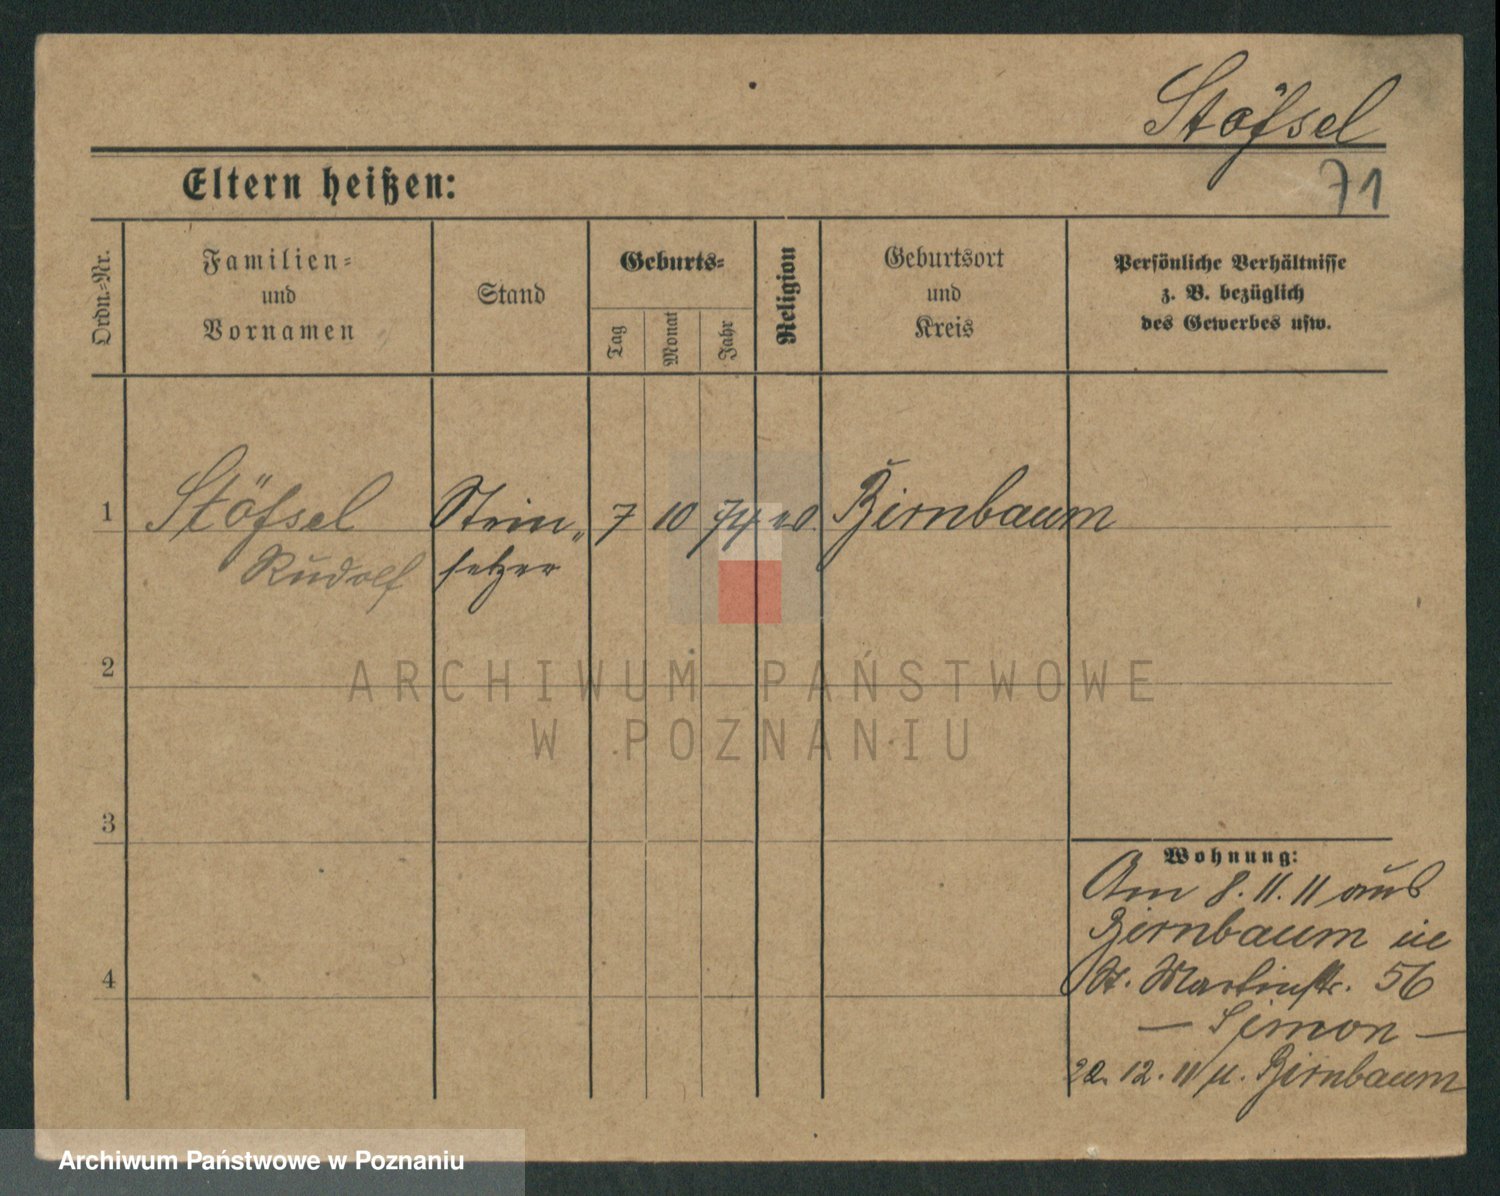 Stößel
71
Eltern heißen:
Ordn.-Nr.
Familien-
und
Vornamen
Stand
Geburts-
Tag
Monat
Jahr
Religion
Geburtsort
und
Kreis
Persönliche Verhältnisse
z. B. bezüglich
des Gewerbes usw.
1 Stößel Stein„ 7 10 74 Birnbaum
Rudolf setzer
2
3
4
Wohnung:
Am 8.11.11 aus
Birnbaum in
St. Martinstr. 56
— Simon —
22.12.11 n. Birnbaum
ARCHIWUM PAŃSTWOWE
W POZNANIU
Archiwum Państwowe w Poznaniu